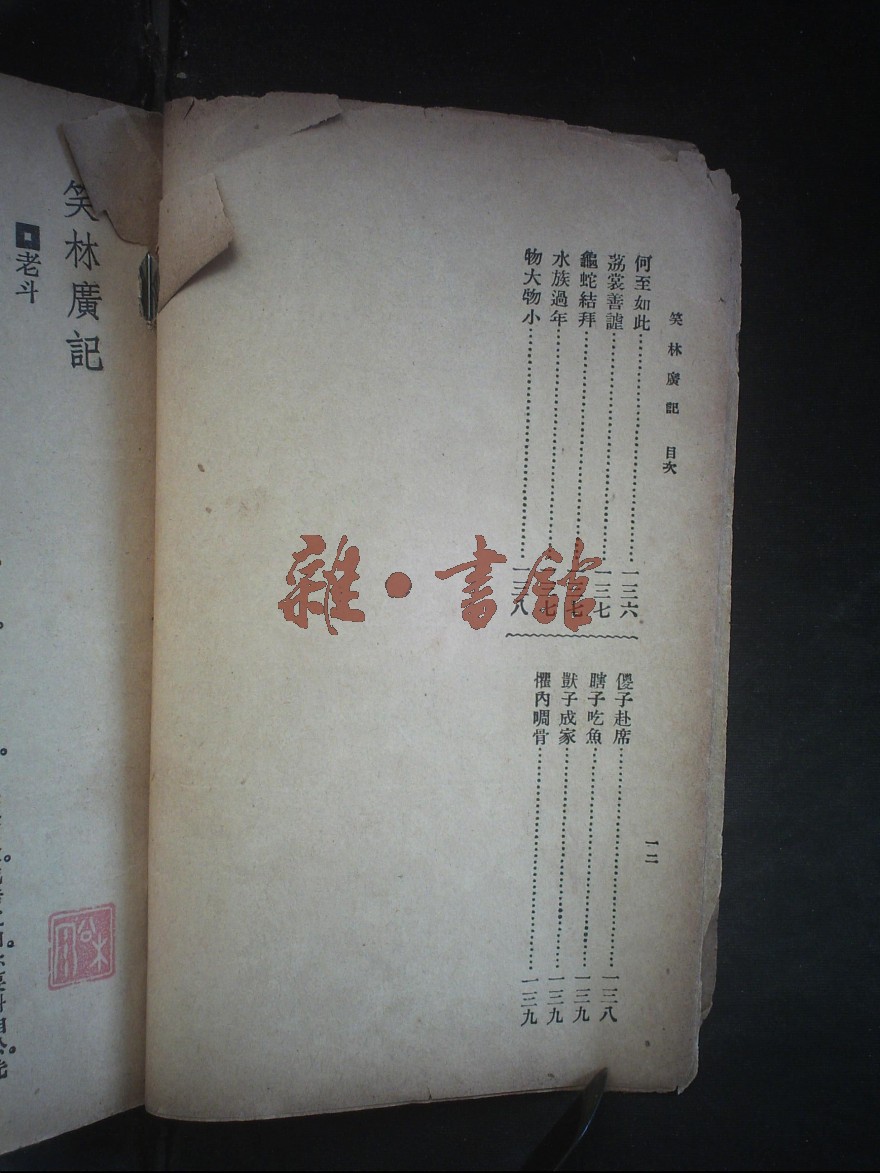 笑林廣記 目次
何至如此……一三六
荔裳善謔……一三七
龜蛇結拜……一三七
水族過年……一三七
物大物小……一三八
傻子赴席……一三八
瞎子吃魚……一三九
獃子成家……一三九
懼內啁骨……一三九
一二
笑林廣記
老斗
雜·書館